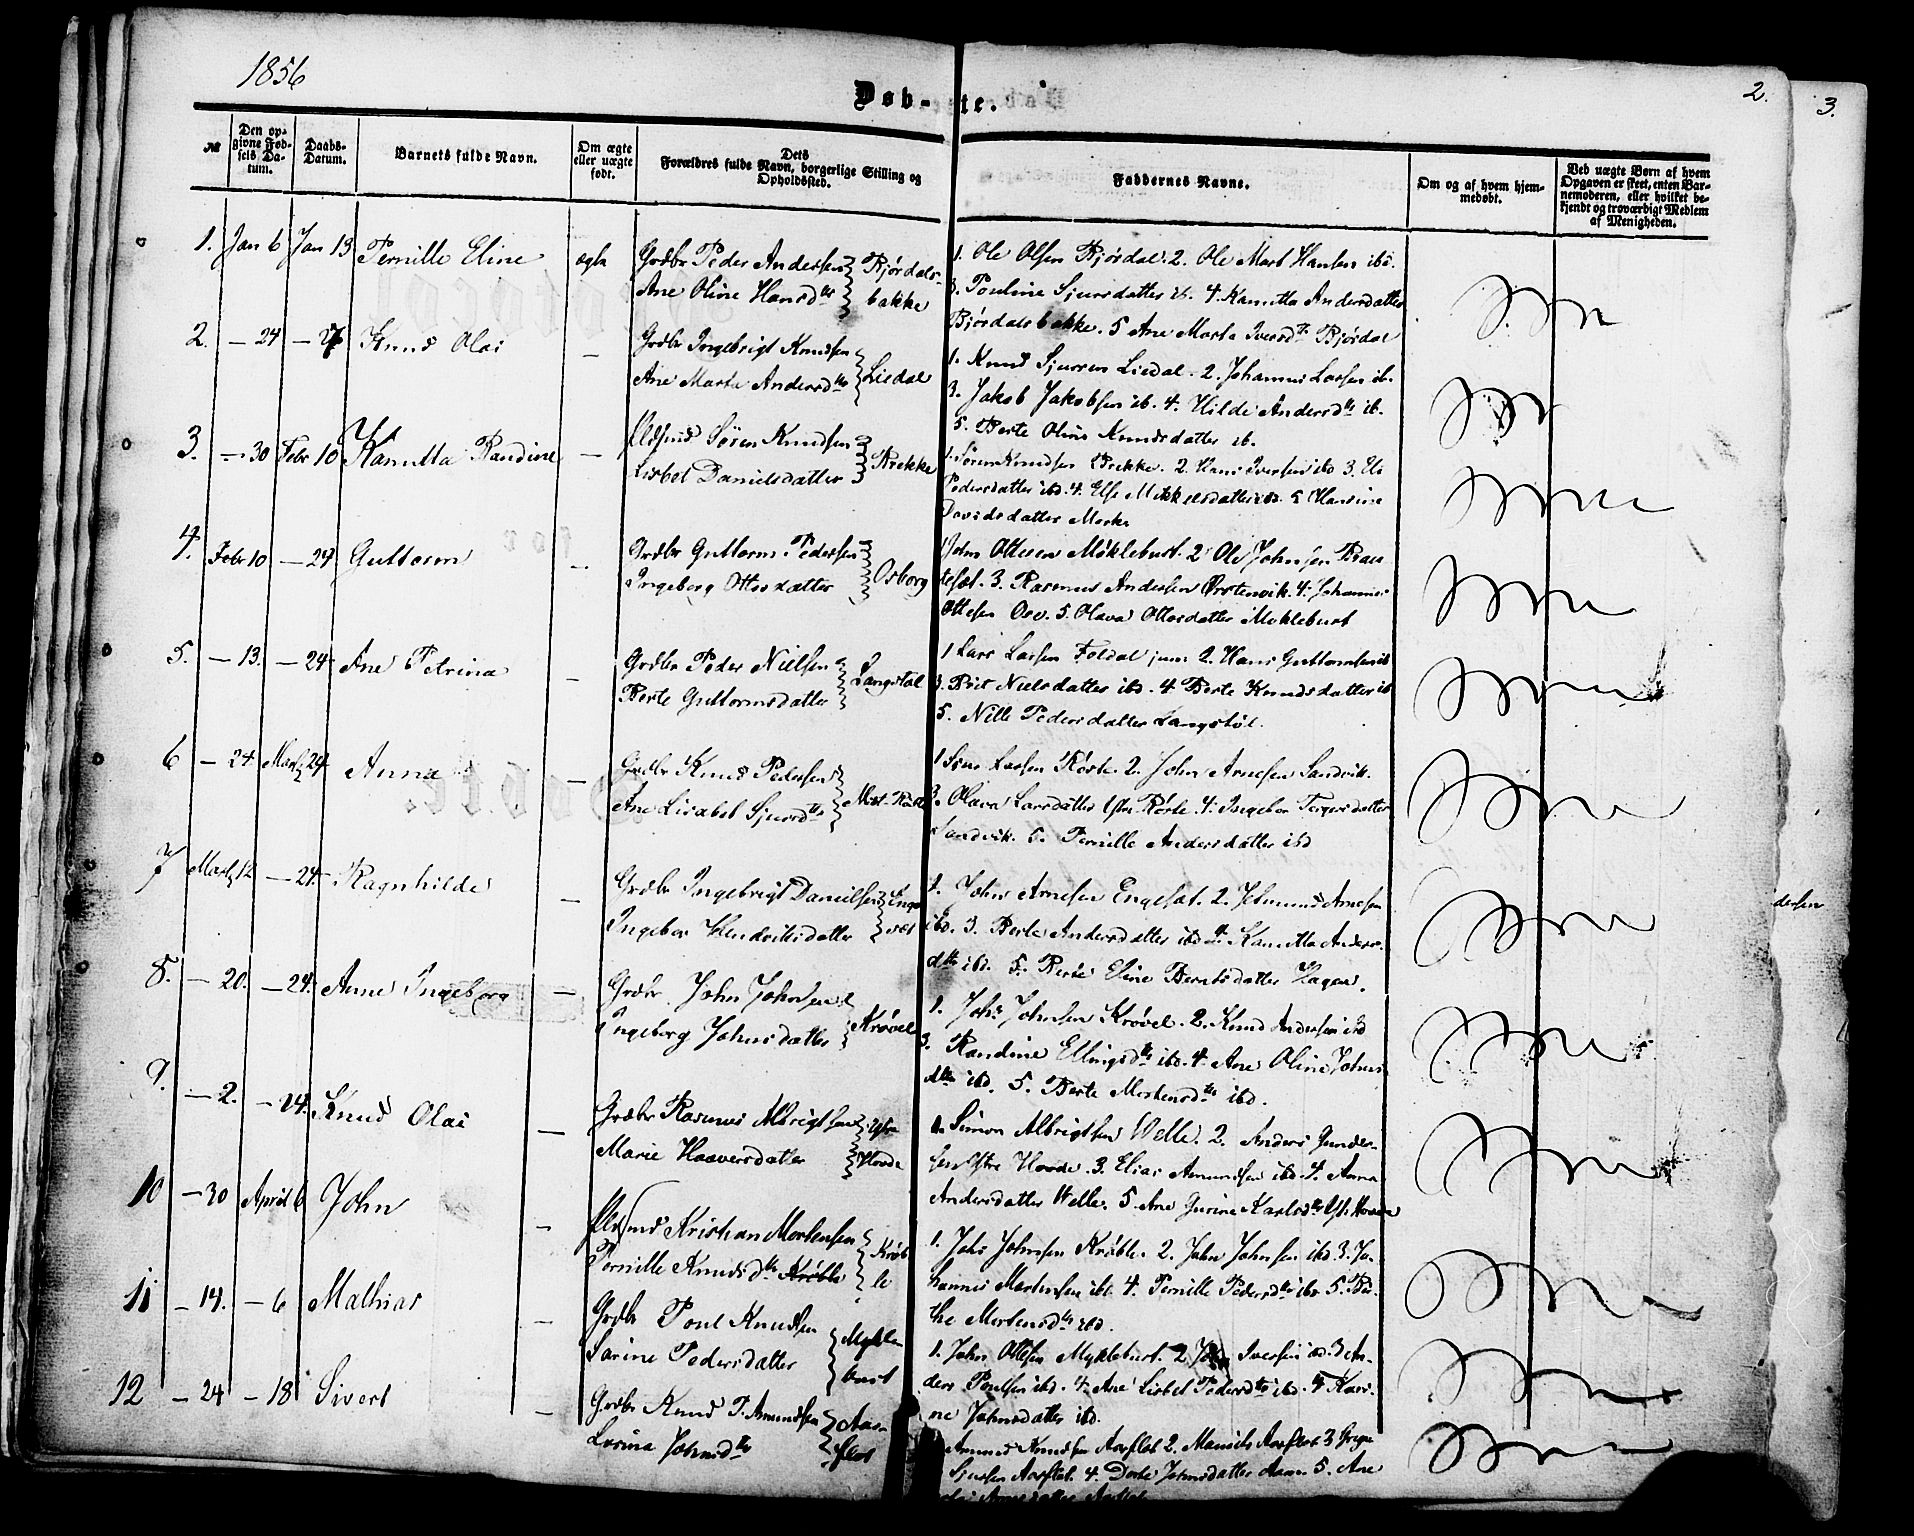 1856
Døb-te.
2.
3.
№
Den op-
givne Fød-
sels Da-
tum.
Daabs-
Datum.
Barnets fulde Navn.
Om ægte
eller uægte
født.
Dets
Forældres fulde Navn, borgerlige Stilling og
Opholdssted.
Faddernes Navne.
Om og af hvem hjem-
medøbt.
Ved uægte Børn af hvem
Opgaven er skeet, enten Bar-
nemoderen, eller hvilket be-
kjendt og troværdigt Medlem
af Menigheden.
1. Jan 6 Jan 13 Pernille Eline ægte
Grdbr Peder Andersen
Ane Oline Hansdtr
Bjørdals-
bakke
1. Ole Olsen Bjørdal. 2. Ole Mart Hansen ibd.
3. Pouline Sjursdatter ib. 4. Kanutta Andersdatter
Bjørdalsbakke. 5 Ane Marta Iversdtr Bjørdal
2. — 24 — 27 Knud Olai —
Grdbr Ingebrigt Knudsen
Ane Marte Andersdtr
Liedal
1. Knud Sjursen Liedal. 2. Johannes Larsen ib.
3. Jakob Jakobsen ib. 4. Hilde Andersdtr ib.
5. Berte Oline Knudsdatter ib.
3. — 30 Febr 10 Kanutta Randine —
Søren Knudsen
Lisbet Danielsdatter
Brekke
1. Søren Knudsen Brekke. 2. Hans Iversen ibd 3. Eli
Pedersdatter ibd. 4. Else Mikkelsdatter ibd. 5 Hansine
Davidsdatter Mork
4. Febr 10 — 24 Guttorm —
Grdbr Guttorm Pedersen
Ingeborg Ottersdatter
Osborg
1 John Ottesen Møklebust. 2 Ole Johnsen Brau-
teset. 3. Rasmus Andersen Ørstenvik. 4. Johannes
Ottesen Osv. 5. Olava Ottosdatter Mokleburst
5. — 13. — 24. Ane Petrina —
Grdbr Peder Nielsen
Berte Guttormsdatter
Langstøl
1 Lars Larsen Foldal jun: 2. Hans Guttormsen ib
3. Brit Nielsdatter ibd. 4 Berte Knudsdatter ib
5. Nille Pedersdatter Langstøl.
6 — 24 Marts 24 Anna —
Grdbr Knud Pedersen
Ane Lisabet Sjursdtr
1 Larsen Røste. 2. John Arnesen Sandvik.
3. Olava Larsdatter Røste. 4. Ingebor
Sandvik. 5. Pernille Andersdatter ibd
7 Marts 12 — 24. Ragnhilde —
Grdbr Ingebrigt Danielsen
Ingebor Hendriksdatter
Enge-
set
1. John Arnesen Engeset. 2. Arnesen
ibd. 3. Berte Andersdatter ibd 4. Kanutta Anders-
dtr ibd. 5. Berte Eline Berntsdatter Hagen.
8. — 20. — 24. Anne Ingeborg —
Grdbr John Johnsen
Ingeborg Johnsdatter
Krøvel
1. Johs Johnsen Krøvel. 2. Knud Andersen ibd
3. Randine Ellingsdtr ibd. 4. Ane Oline Johns
dtr ibd. 5. Berte Mortensdtr ibd.
9. — 2. — 24. Knud Olai —
Grdbr Rasmus Albrigtsen
Marie Haaversdatter
Ystre
Hovde
1. Simon Albrigtsen Welle. 2. Anders Gunder-
sen Ystre Hovde. 3. Elias Amundsen ibd. 4. Anna
Andersdatter Welle. 5. Ane Gurine Karlsdtr Yst. Hovde
10 — 30 April 6 John —
Kristian Mortensen
Pernille Knudsdtr Krøble
Krøb-
le
1. Johs Johnsen Krøble. 2. John Johnsen ibd 3. Jo-
hannes Mortensen ibd. 4. Pernille Pedersdtr ibd 5. Be-
the Mortensdtr ibd.
11 — 14. — 6 Mathias —
Grdbr Poul Knudsen
Sarine Pedersdatter
Mykle-
bust
1. John Ottesen Mykleburst. 2 John Iversen ibd. 3 An-
ders Poulsen ibd. 4. Ane Lisbet Pedersdtr ibd. 5 Kari-
ne Johnsdatter ibd.
12 — 24 — 18 Sivert —
Grdbr Knud P. Amundsen
Lovina Johnsdtr
Aar-
flot
Amund Knudsen Aarflot 2. Aarflot 3
Sjursen Aarflot. 4. Dorte Johnsdatter Aam. 5. Ane
dersen